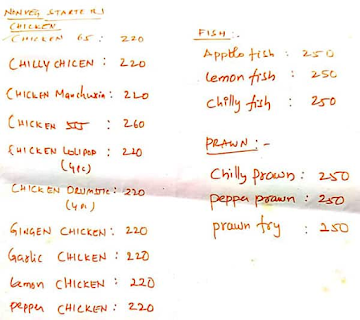 NONVEG STARTERS
CHICKEN
CHICKEN 65 : 220
CHILLY CHICEN : 220
CHICKEN Manchuria : 220
CHICKEN 555 : 260
CHICKEN LOLIPOP : 220
(4pc)
CHICKEN DRUMSTIC : 220
(4pc)
GINGEN CHICKEN : 220
Garlic CHICKEN : 220
Lemon CHICKEN : 220
Pepper CHICKEN : 220
FISH :-
Appllo fish : 250
lemon fish : 250
chilly fish : 250
PRAWN :-
Chilly prawn : 250
pepper prawn : 250
prawn fry : 250